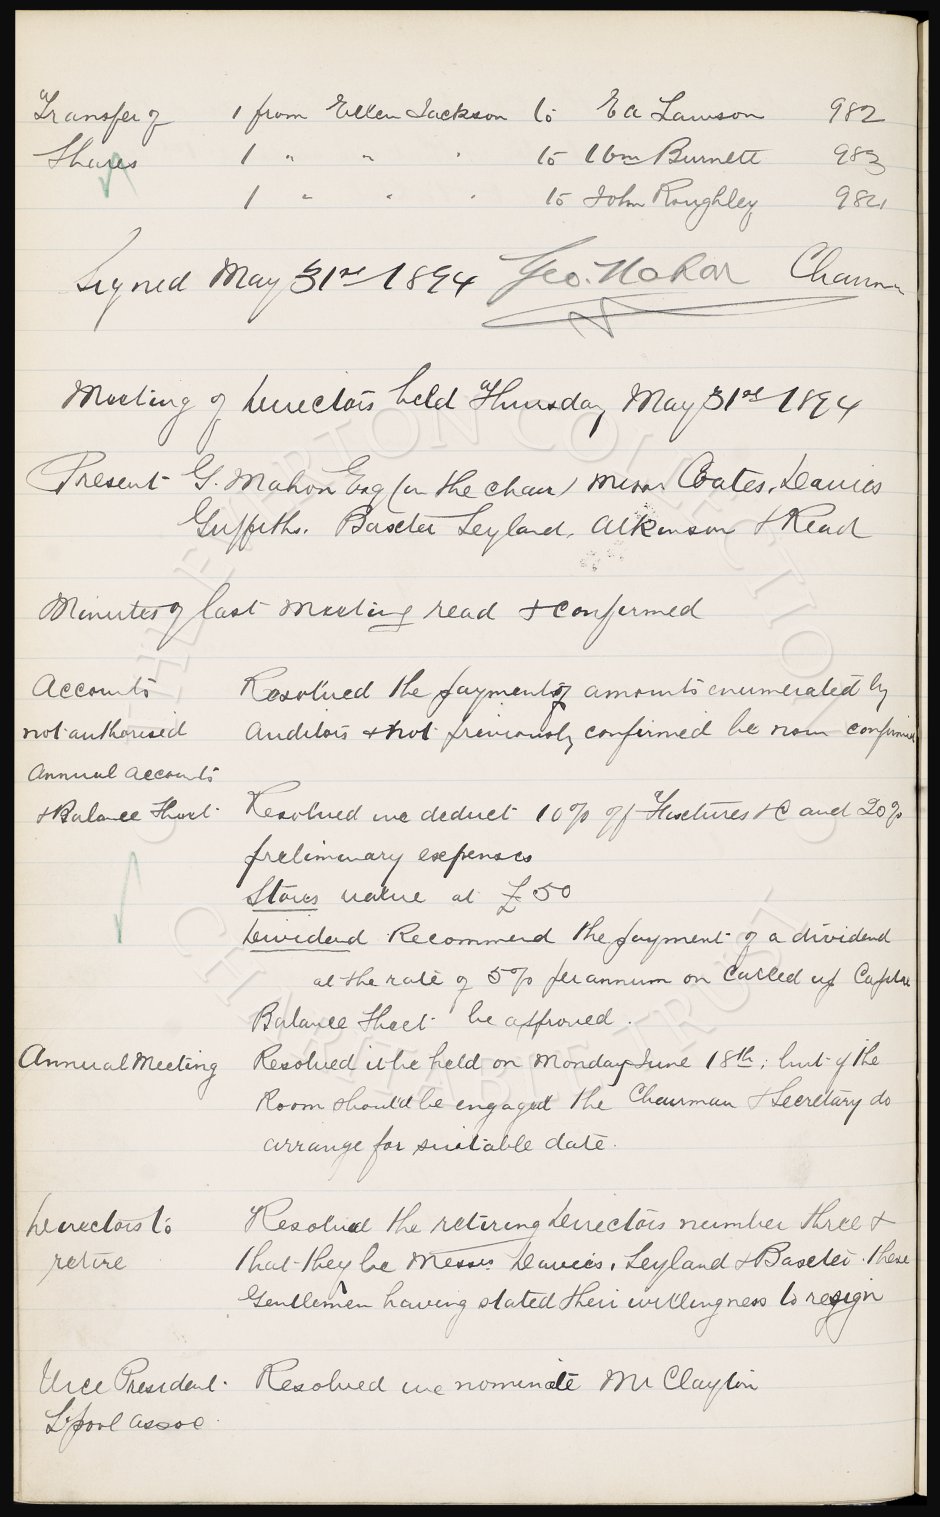 Transfer of 1 from Ellen Jackson to Ed Lawson 982
Shares 1 " " " to Wm Burnett 983
1 " " " to John Roughley 984
Signed May 31st 1894 Geo. Mahon Chairman
Meeting of Directors held Thursday May 31st 1894
Present G. Mahon Esq (in the chair) Messrs Coates, Davies
Griffiths. Baxter Leyland, Atkinson & Read
Minutes of last meeting read & confirmed
Accounts Resolved the payment of amounts enumerated by
not authorised Auditors & not previously confirmed be now confirmed
Annual accounts
& Balance Sheet Resolved we deduct 10% off Fixtures &c and 20%
preliminary expenses
Stores value at £50
Dividend Recommend the payment of a dividend
at the rate of 5% per annum on Called up Capital
Balance Sheet be approved.
Annual Meeting Resolved it be held on Monday June 18th; but if the
Room should be engaged the Chairman & Secretary do
arrange for suitable date.
Directors to Resolved the retiring Directors number three &
retire that they be Messrs Davies, Leyland & Baxter. these
Gentlemen having stated their willingness to resign
Vice President Resolved we nominate Mr Clayton
L'pool assoc.
THE EVERTON COLLECTION
CHARITABLE TRUST